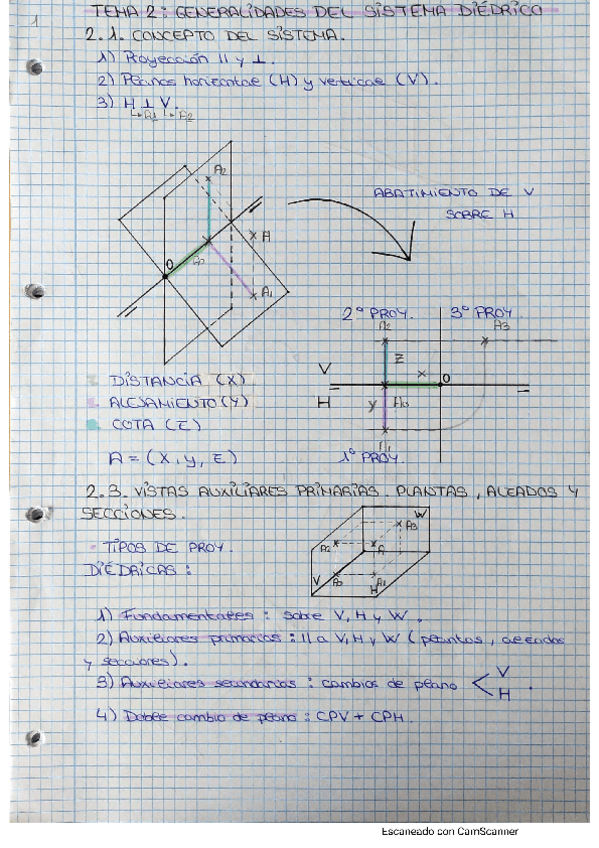 1
TEMA 2: GENERALIDADES DEL SISTEMA DIÉDRICO
2.1. CONCEPTO DEL SISTEMA.
1) Proyección || y ⊥.
2) Planos horizontal (H) y vertical (V).
3) H ⊥ V.
A1 A2
A2
ABATIMIENTO DE V
SOBRE H
A
O
A0
A1
2º PROY. 3º PROY.
A2 A3
Z
V
X
O
DISTANCIA (X)
H
ALEJAMIENTO (Y)
Y
A0
COTA (Z)
A1
A = (X, Y, Z)
1º PROY.
2.3. VISTAS AUXILIARES PRIMARIAS. PLANTAS, ALZADOS Y
SECCIONES.
W
A3
- TIPOS DE PROY.
A2
A
DIÉDRICAS:
V
A0
H
A1
1) Fundamentales: sobre V, H y W.
2) Auxiliares primarias: || a V, H y W (plantas, alzados
y secciones).
3) Auxiliares secundarias: cambios de plano < V H .
4) Doble cambio de plano: CPV + CPH.
Escaneado con CamScanner